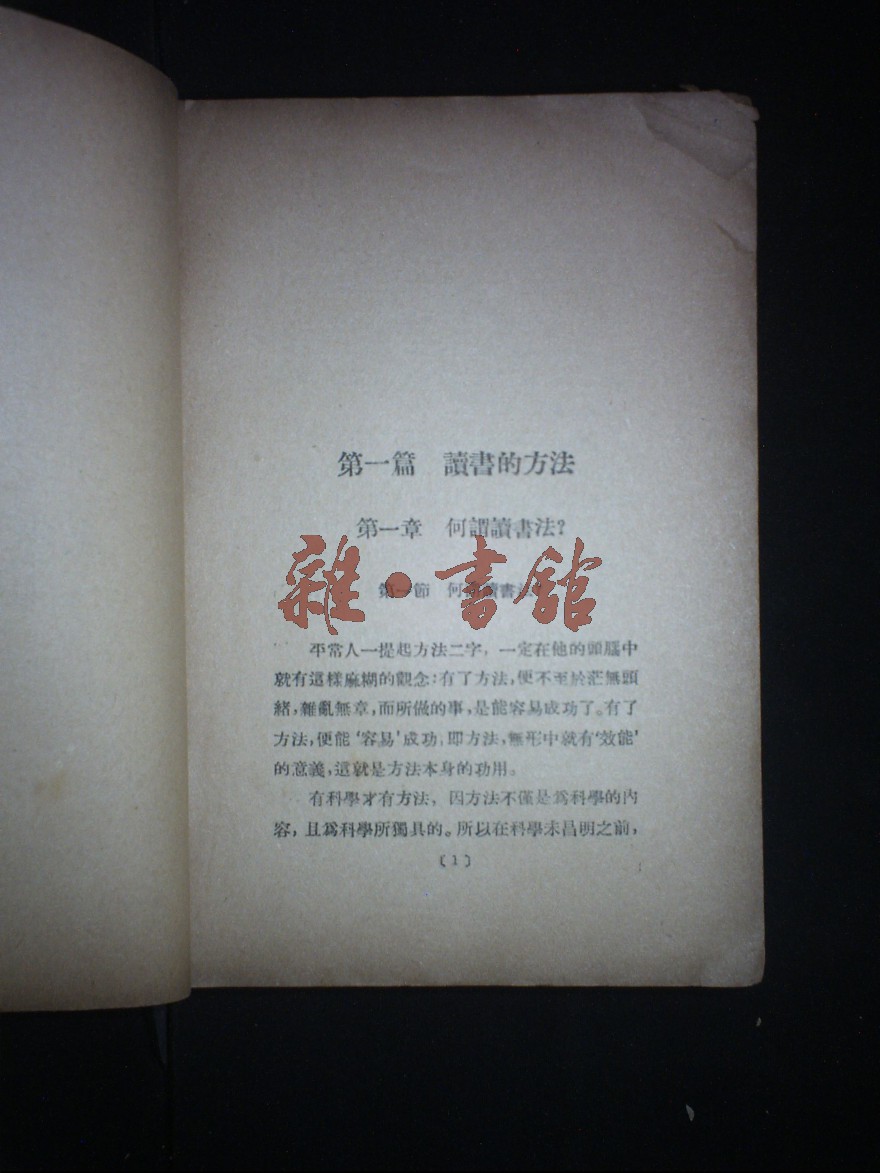 第一篇　讀書的方法
第一章　何謂讀書法?
雜·書館
第一節　何謂讀書法?
平常人一提起方法二字，一定在他的頭腦中
就有這樣麻糊的觀念：有了方法，便不至於茫無頭
緒，雜亂無章，而所做的事，是能容易成功了。有了
方法，便能‘容易’成功；即方法，無形中就有‘效能’
的意義，這就是方法本身的功用。
有科學才有方法，因方法不僅是爲科學的內
容，且爲科學所獨具的。所以在科學未昌明之前，
〔1〕